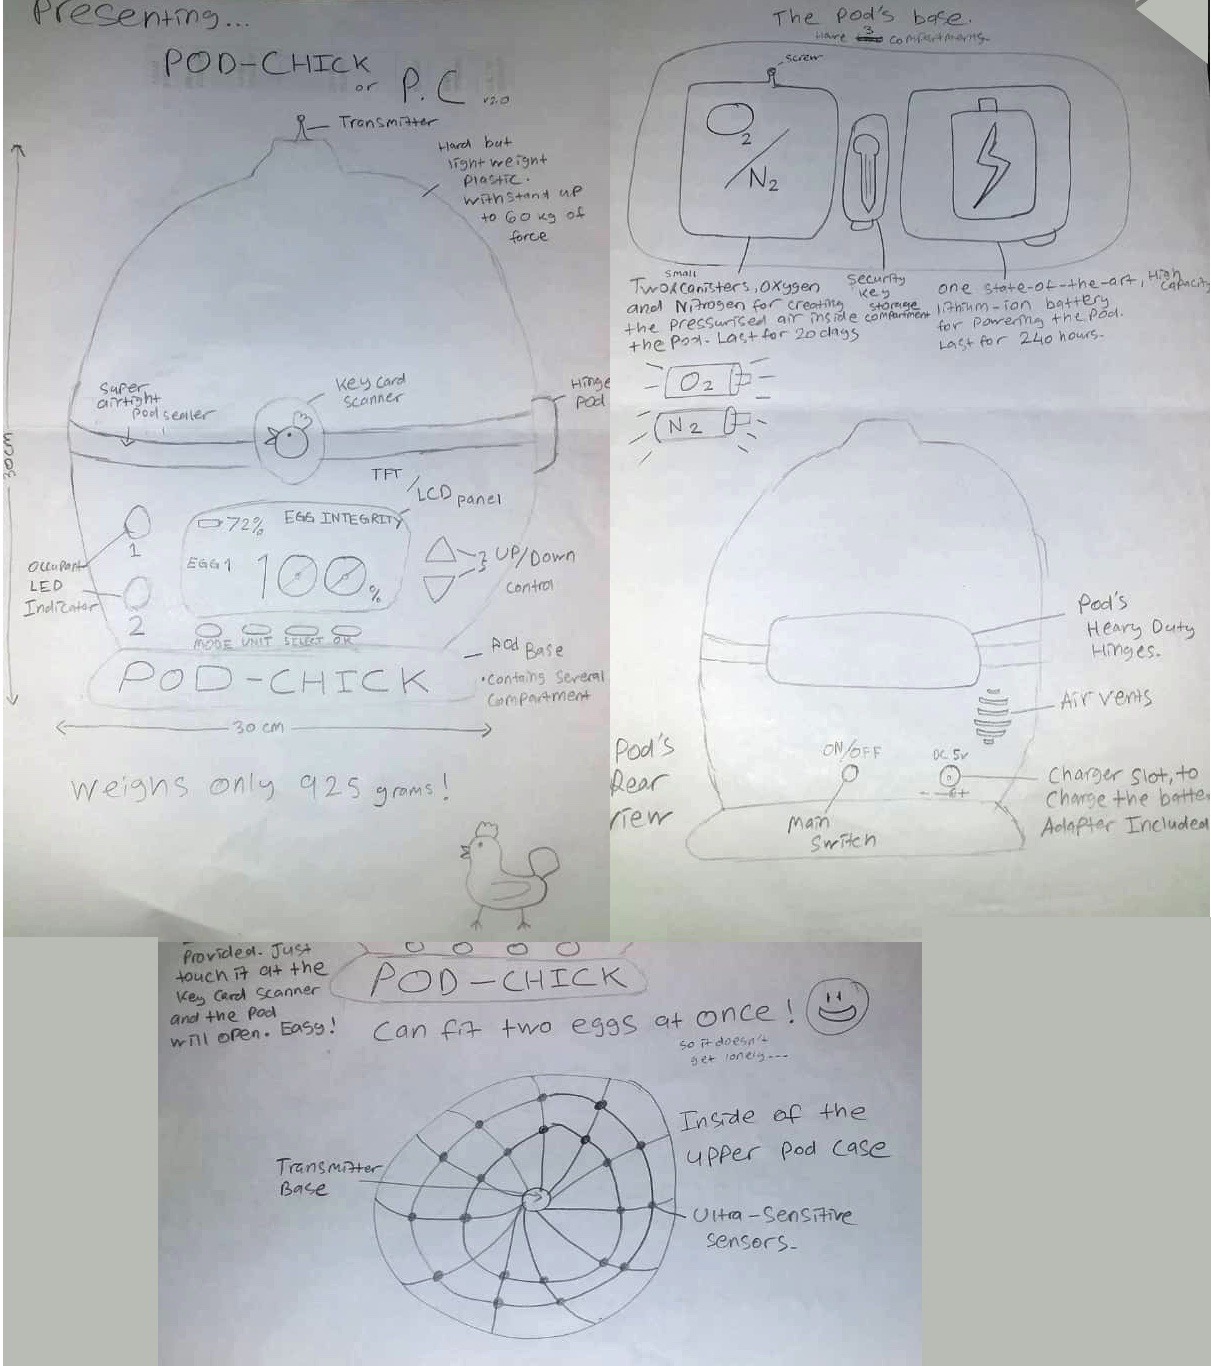 Presenting...
POD-CHICK
or P.C v2.0
Transmitter
Hard but
light weight
plastic.
withstand up
to 60 kg of
force
30cm
Super
airtight
Pod sealer
Key Card
scanner
Hinge
Pod
TFT
/LCD panel
72% EGG INTEGRITY
EGG 1 100%
UP/Down
control
1
Occupant
LED
Indicator
2
MODE UNIT SELECT OK
POD-CHICK
Pod Base
•contains several
compartment
30 cm
Weighs only 925 grams!
The Pod's base.
Have 3 compartments.
screw
O2/N2
Two small canisters, Oxygen
and Nitrogen for creating
the pressurised air inside
the Pod. Last for 20 days
security
key
storage
compartment
one state-of-the-art, High capacity
lithium-ion battery
for powering the pod.
Last for 240 hours.
O2
N2
Pod's
Heavy Duty
Hinges.
Air vents
Pod's
Rear
view
ON/OFF
DC 5v
- +
Main
Switch
Charger Slot, to
Charge the batte
Adapter Included
Provided. Just
touch it at the
Key Card scanner
and the Pod
will open. Easy!
POD-CHICK
Can fit two eggs at once!
so it doesn't
get lonely...
Inside of the
upper pod case
Transmitter
Base
Ultra-Sensitive
sensors.